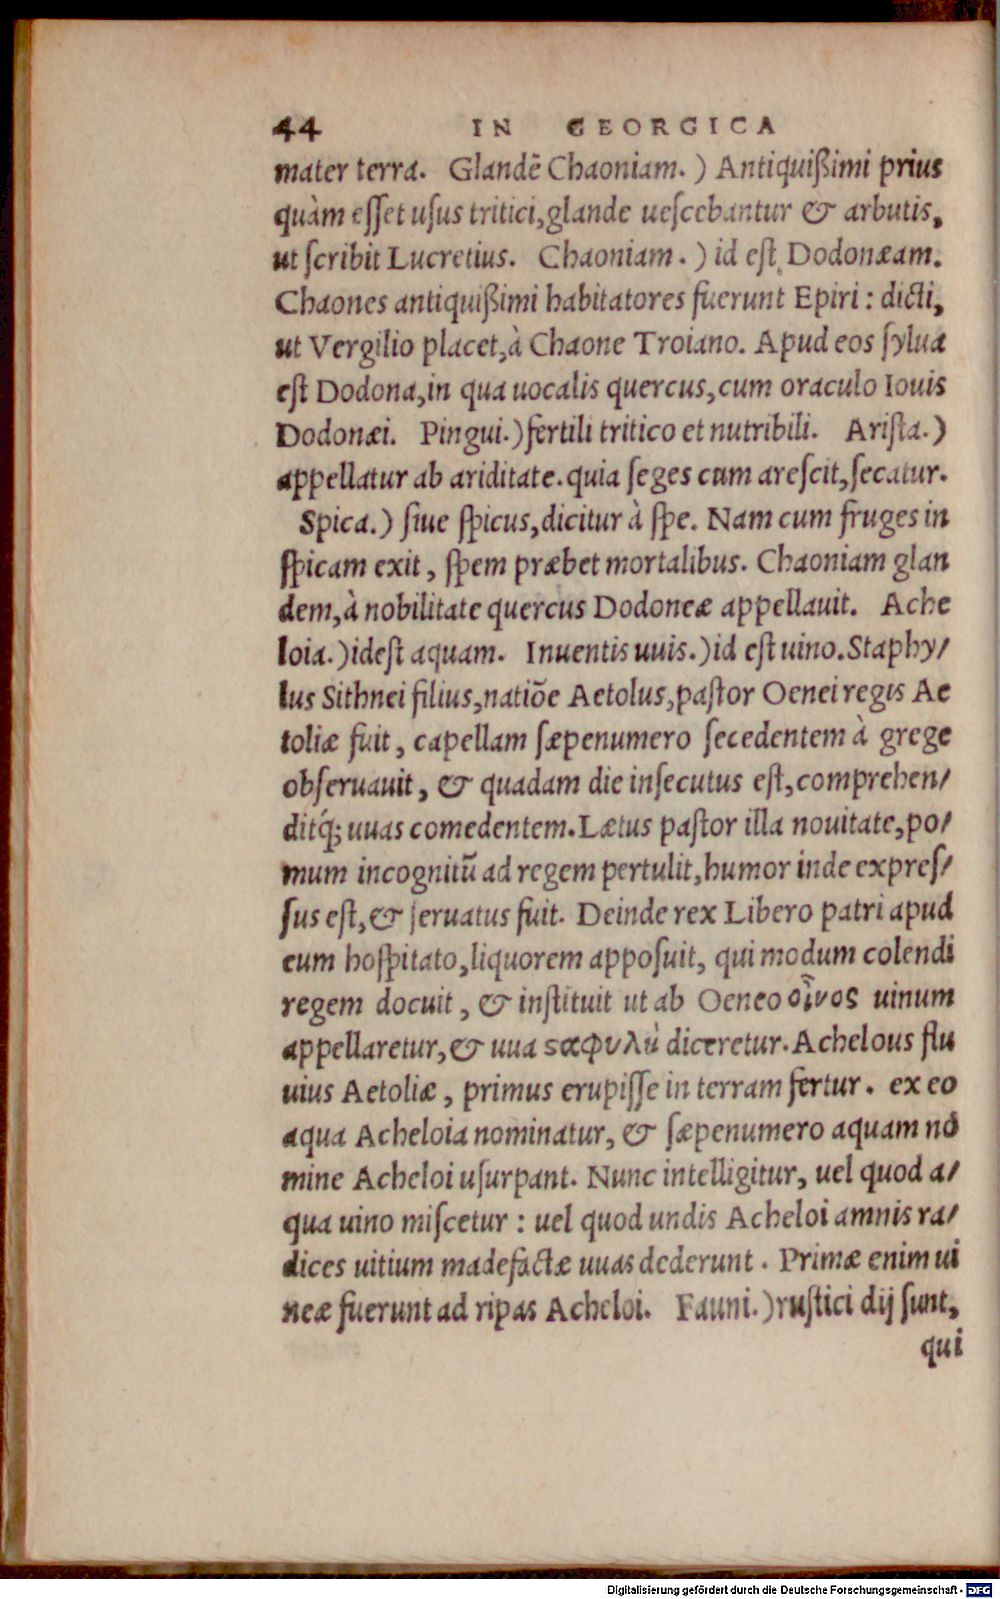 44 IN GEORGICA
mater terra. Glandē Chaoniam.) Antiquißimi prius
quàm eſſet uſus tritici, glande ueſcebantur & arbutis,
ut ſcribit Lucretius. Chaoniam.) id eſt Dodonæam.
Chaones antiquißimi habitatores fuerunt Epiri: dicti,
ut Vergilio placet, à Chaone Troiano. Apud eos ſylua
eſt Dodona, in qua uocalis quercus, cum oraculo Iouis
Dodonæi. Pingui.) fertili tritico et nutribili. Ariſta.)
appellatur ab ariditate. quia ſeges cum areſcit, ſecatur.
Spica.) ſiue ſpicus, dicitur à ſpe. Nam cum fruges in
ſpicam exit, ſpem præbet mortalibus. Chaoniam glan
dem, à nobilitate quercus Dodoneæ appellauit. Ache
loia.) ideſt aquam. Inuentis uuis.) id eſt uino. Staphy/
lus Sithnei filius, natiōe Aetolus, paſtor Oenei regis Ae
toliæ fuit, capellam ſæpenumero ſecedentem à grege
obſeruauit, & quadam die inſecutus eſt, comprehen/
ditq́; uuas comedentem. Lætus paſtor illa nouitate, po/
mum incognitū ad regem pertulit, humor inde expreſ/
ſus eſt, & ſeruatus fuit. Deinde rex Libero patri apud
eum hoſpitato, liquorem appoſuit, qui modum colendi
regem docuit, & inſtituit ut ab Oeneo οἶνος uinum
appellaretur, & uua ϛαφυλὺ diceretur. Achelous flu
uius Aetoliæ, primus erupiſſe in terram fertur. ex eo
aqua Acheloia nominatur, & ſæpenumero aquam nō
mine Acheloi uſurpant. Nunc intelligitur, uel quod a/
qua uino miſcetur: uel quod undis Acheloi amnis ra/
dices uitium madefactæ uuas dederunt. Primæ enim ui
neæ fuerunt ad ripas Acheloi. Fauni.) ruſtici dij ſunt,
qui
Digitalisierung gefördert durch die Deutsche Forschungsgemeinschaft - DFG